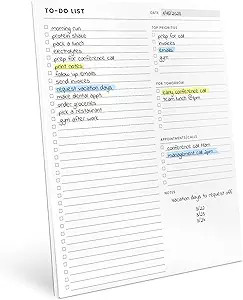 TO-DO LIST
DATE
morning run
protein shake
pack a lunch
electrolytes
prep for conference call
print notes
follow up emails
send invoices
request vacation days
make dental appt.
order groceries
pick a restaurant
gym after work
TOP PRIORITIES
prep for call
invoices
emails
gym
FOR TOMORROW
early conference call
team lunch
APPOINTMENTS/CALLS
conference call 11am
management call 2pm
NOTES
vacation days to request off